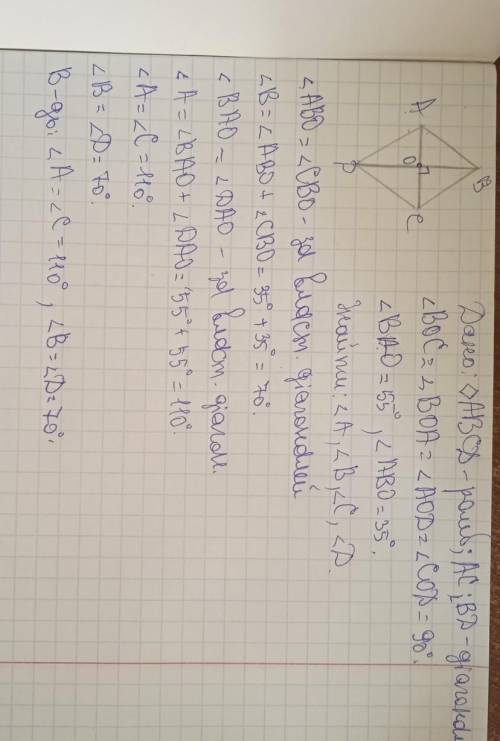 Дано: ◇ABCD - ромб; AC і BD - діагонал
∠BOC = ∠BOA = ∠AOD = ∠COD = 90°.
∠BAO = 55°, ∠ABO = 35°.
Знайти: ∠A, ∠B, ∠C, ∠D.
A
B
C
D
O
∠ABO = ∠CBO - за власт. діагоналей
∠B = ∠ABO + ∠CBO = 35° + 35° = 70°.
∠BAO = ∠DAO - за власт. діагон.
∠A = ∠BAO + ∠DAO = 55° + 55° = 110°.
∠A = ∠C = 110°.
∠B = ∠D = 70°.
В-дь: ∠A = ∠C = 110°, ∠B = ∠D = 70°.